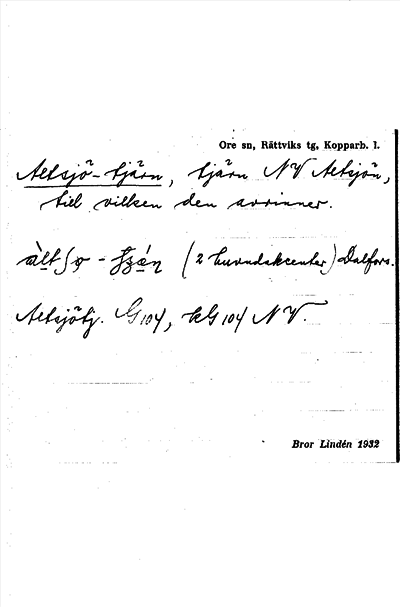 Ore sn, Rättviks tg, Kopparb. l.
Altsjö-tjärn, tjärn NV Altsjön,
till vilken den avrinner.
(2 huvudakcenter) Dalfors.
Altsjötj. G104, kG 104 NV.
Bror Lindén 1932